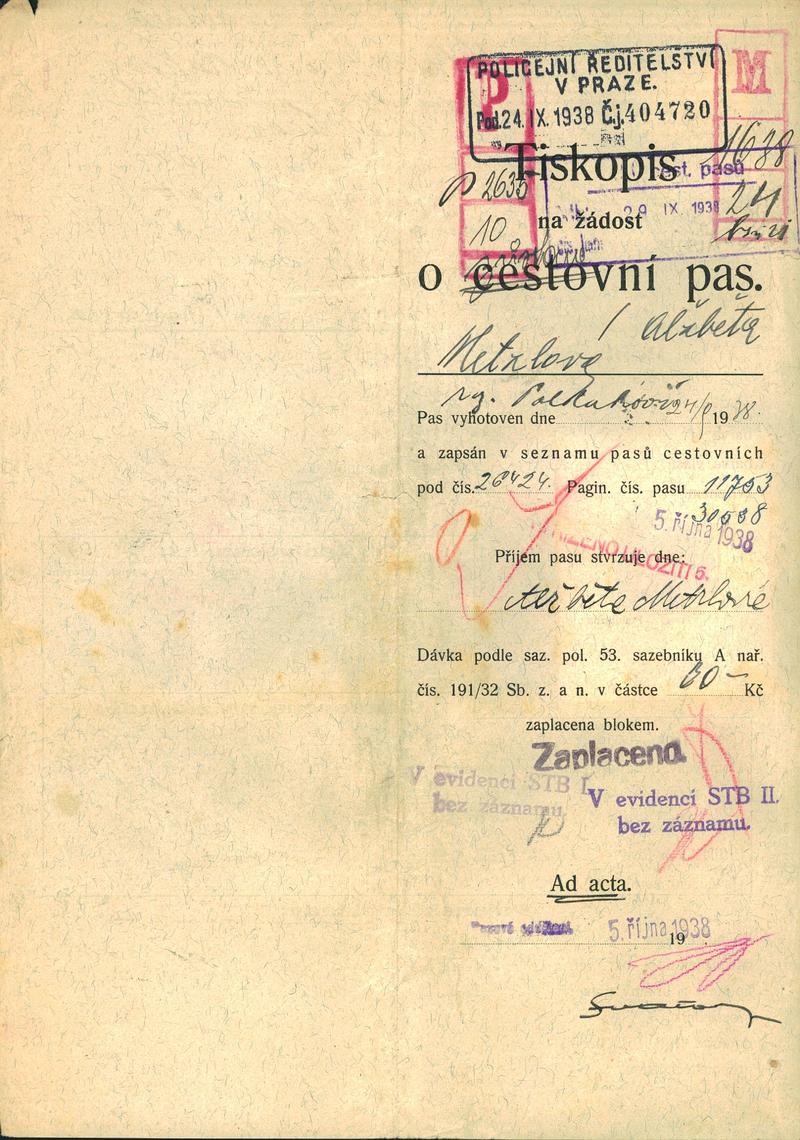 POLICEJNÍ ŘEDITELSTVÍ
V PRAZE.
Pod. 24. IX. 1938 Čj. 404720
P
M
Tiskopis
1638
P 2635
pasů
29 IX 1938
24
10
na žádost
o cestovní pas.
Alžběta
Metzlová
Pas vyhotoven dne 24/9 1938.
a zapsán v seznamu pasů cestovních
pod čís. 26424. Pagin. čís. pasu 11753
30538
5. října 1938
Příjem pasu stvrzuje dne:
Alžběta Metzlová
Dávka podle saz. pol. 53. sazebníku A nař.
čís. 191/32 Sb. z. a n. v částce Kč
zaplacena blokem.
Zaplaceno.
V evidenci STB I.
bez záznamu.
V evidenci STB II.
bez záznamu.
Ad acta.
5. října 1938
19